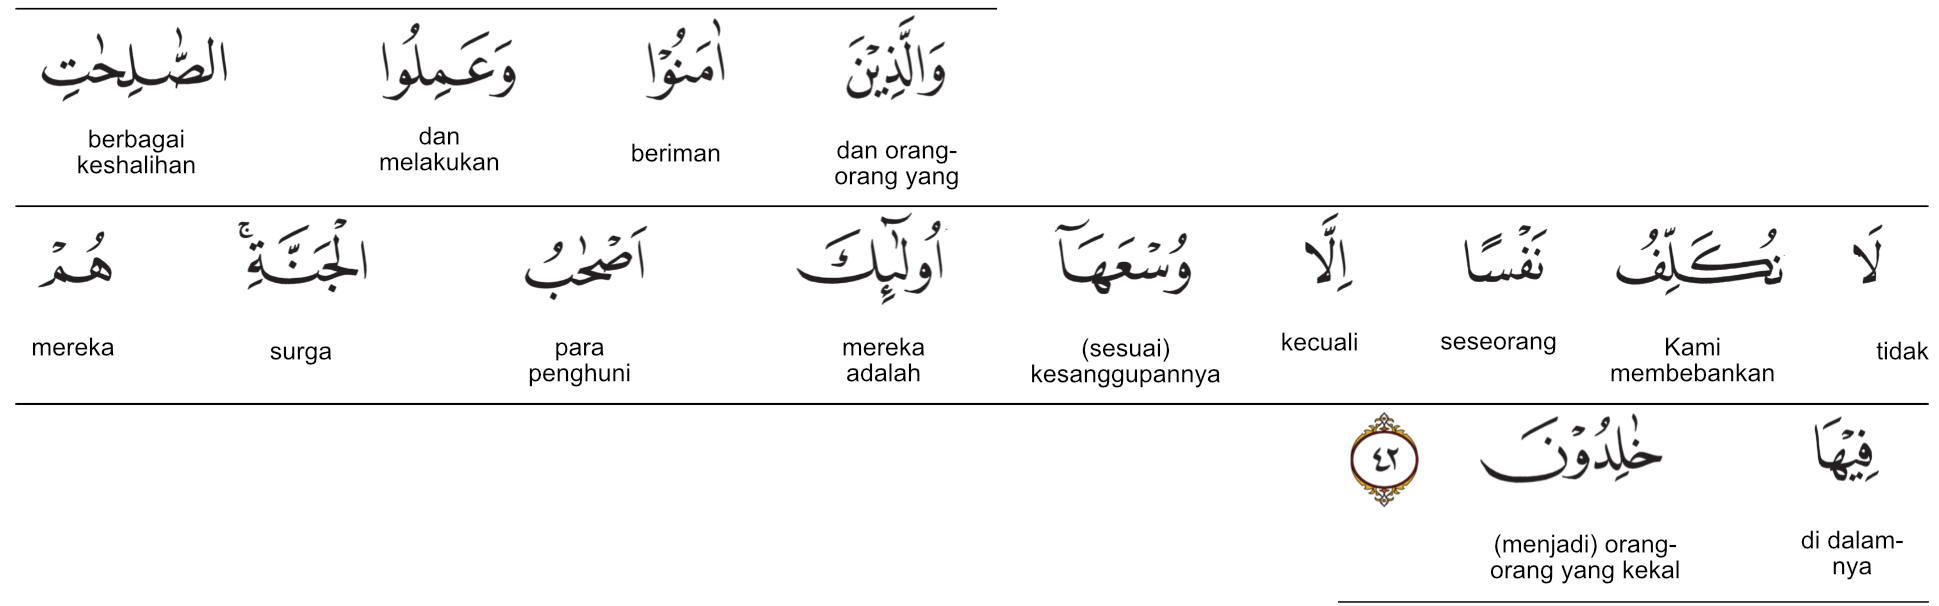 وَالَّذِيْنَ اٰمَنُوْا وَعَمِلُوا الصّٰلِحٰتِ
dan orang- beriman dan berbagai
orang yang melakukan keshalihan
لَا نُكَلِّفُ نَفْسًا اِلَّا وُسْعَهَآ اُولٰۤىِٕكَ اَصْحٰبُ الْجَنَّةِۚ هُمْ
tidak Kami seseorang kecuali (sesuai) mereka para surga mereka
membebankan kesanggupannya adalah penghuni
فِيْهَا خٰلِدُوْنَ ٤٢
di dalam- (menjadi) orang-
nya orang yang kekal